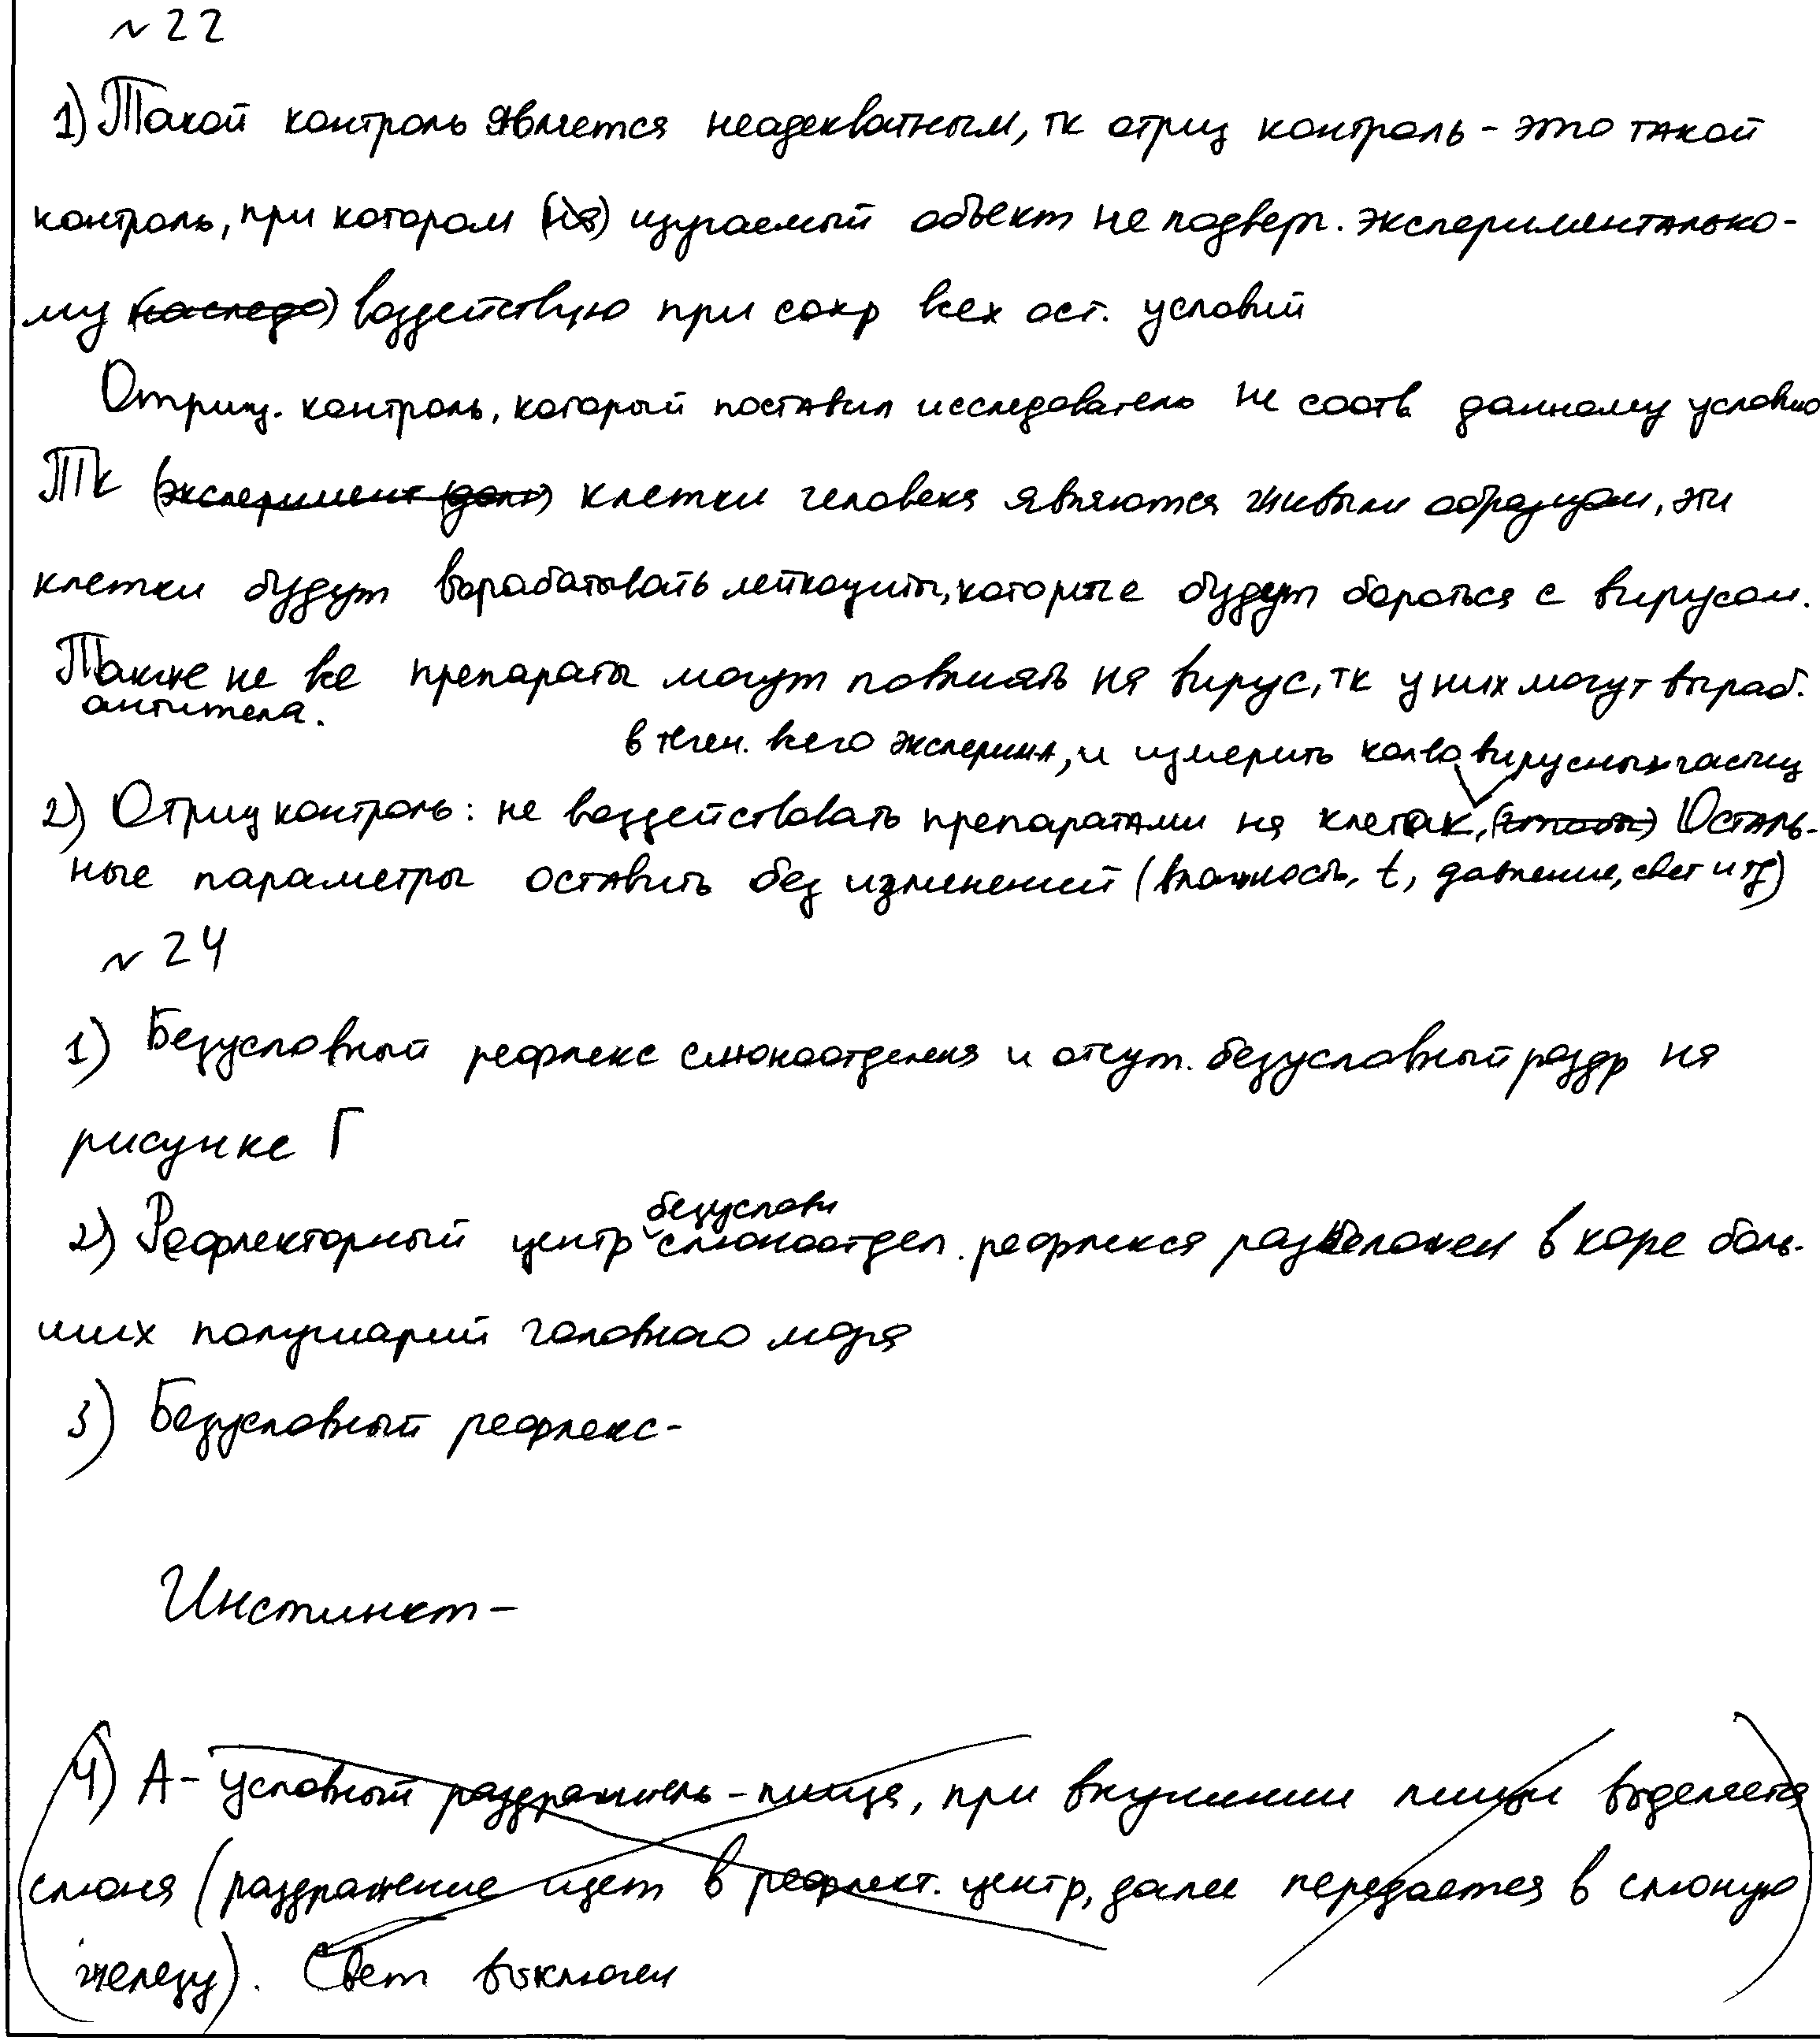 №22
1) Такой контроль является неадекватным, тк отриц контроль - это такой
контроль, при котором (на) изучаемый объект не подверг. экспериментально-
му (наследо) воздействию при сохр всех ост. условий
Отриц. контроль, который поставил исследователь не соотв данному условию
Тк (эксперимент (долж) клетки человека являются живыми образцом, эти
клетки будут вырабатывать лейкоциты, которые будут бороться с вирусом.
Также не все препараты могут повлиять на вирус, тк у них могут выраб.
антитела.
в течен. всего эксперимен, и измерить колво вирусных частиц
2) Отриц контроль: не воздействовать препаратами на клетк, Осталь-
ные параметры оставить без изменений (влажность, t, давление, свет и тд)
№24
1) Безусловный рефлекс слюноотделеня и отсут. безусловный раздр на
рисунке Г
безусловн
2) Рефлекторный центр слюноотдел. рефлекса расположен в коре боль-
ших полушарий головного мозга
3) Безусловный рефлекс-
Инстинкт-
4) А- условный раздражитель - пища, при вкушении пищи выделяется
слюна (раздражение идет в рефлект. центр, далее передается в слюную
железу). Свет выключен